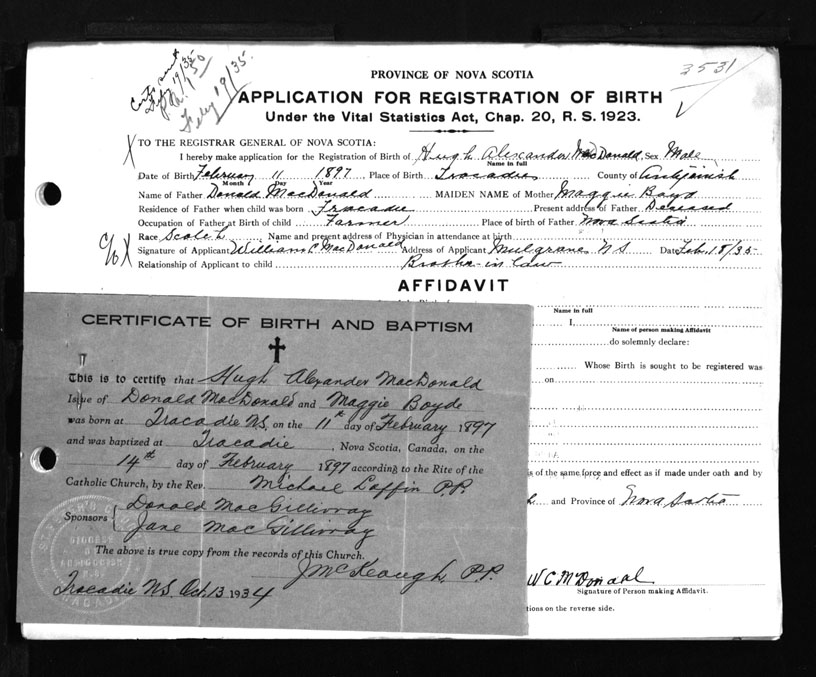 3531
Feby 19/35
PROVINCE OF NOVA SCOTIA
APPLICATION FOR REGISTRATION OF BIRTH
Under the Vital Statistics Act, Chap. 20, R. S. 1923.
TO THE REGISTRAR GENERAL OF NOVA SCOTIA:
I hereby make application for the Registration of Birth of Hugh Alexander MacDonald Sex Male
Name in full
Date of Birth February 11 1897 Place of Birth Tracadie County of Antigonish
Month Day Year
Name of Father Donald MacDonald MAIDEN NAME of Mother Maggie Boyd
Residence of Father when child was born Tracadie Present address of Father Deceased
Occupation of Father at Birth of child Farmer Place of birth of Father Nova Scotia
Race Scotch Name and present address of Physician in attendance at birth
c/o Signature of Applicant William C MacDonald Address of Applicant Mulgrave NS Date Feb. 18/35
Relationship of Applicant to child Brother-in law
AFFIDAVIT
Name in full
I,
Name of person making Affidavit
do solemnly declare:
Whose Birth is sought to be registered was
on
is of the same force and effect as if made under oath and by
and Province of Nova Scotia
W C McDonald
Signature of Person making Affidavit.
tions on the reverse side.
CERTIFICATE OF BIRTH AND BAPTISM
This is to certify that Hugh Alexander MacDonald
Issue of Donald MacDonald and Maggie Boyde
was born at Tracadie N.S. on the 11th day of February 1897
and was baptized at Tracadie, Nova Scotia, Canada, on the
14th day of February 1897 according to the Rite of the
Catholic Church, by the Rev. Michael Laffin P.P.
Sponsors Donald MacGillivray
Jane MacGillivray
The above is true copy from the records of this Church.
J McKeough, P.P.
Tracadie N.S. Oct. 13 1934